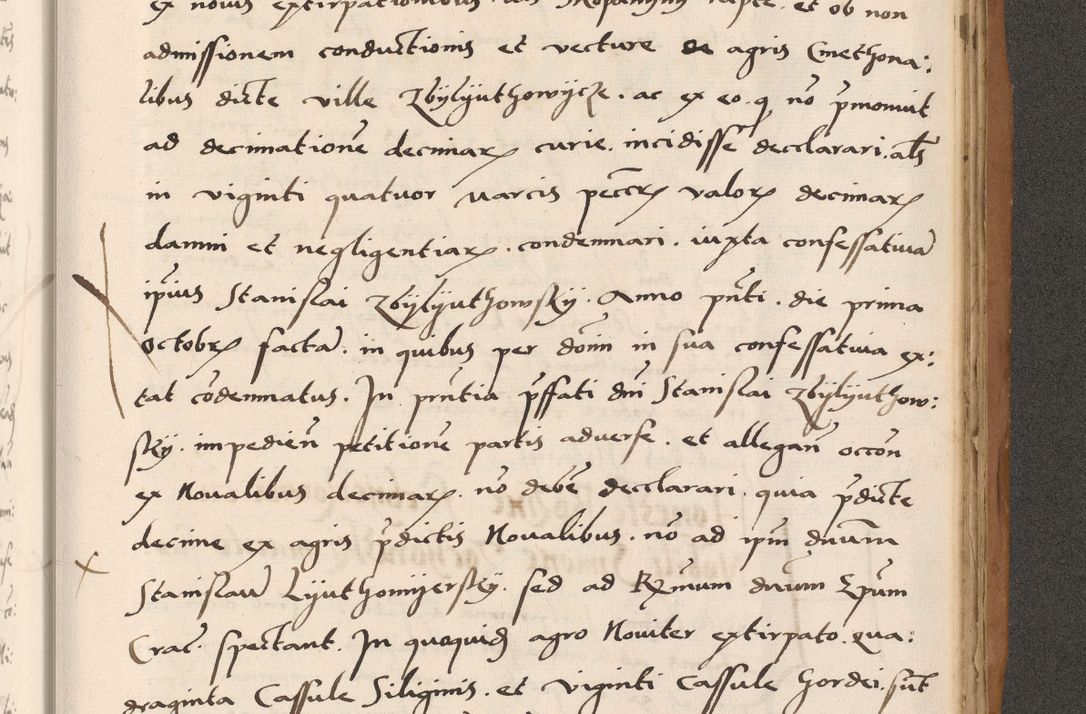 ex novis extirpationibus et ob non
admissionem conductionis et vecture de agris Cmethona:
libus dicte ville Zbylyuthowycze. ac ex eo. q nō p̄monuit
ad decimationē decimarꝝ curie. incidisse declarari. als
in viginti quatuor marcis pecc̄rꝝ valorꝝ decimarꝝ
damni et negligentiarꝝ. condemnari. iuxta confessatiuā
ip̄ius Stanislai Zbylyuthowsky. Anno pn̄ti. die prima
octobrꝝ factā. in quibus per dōm̄ in sua confessatiua ex:
tat cōdemnatus. In pn̄tia p̄ffati dn̄i Stanislai Zbylyuthow:
sky. impedien̄ petitionē partis aduerse. et allegan̄ occōn
ex Noualibus decimarꝝ. nō debē declarari. quia p̄dicte
decime ex agris p̄dictis Noualibus. nō ad ip̄m dnūm
Stanislaū Lyuthomyersky. sed ad Rz̄mum dnūm Ep̄um
Crac̄. spectant. In quoquidȝ agro Nouiter extirpato. qua:
draginta Cassule Siliginis. et viginti Cassule hordei. sūt